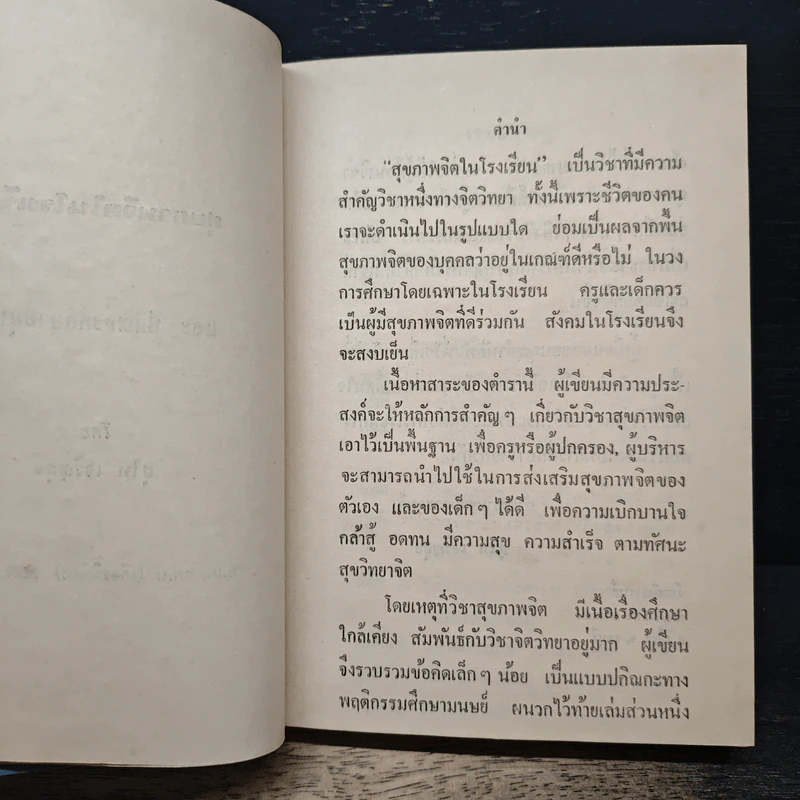 คำนำ
“สุขภาพจิตในโรงเรียน” เป็นวิชาที่มีความ
สำคัญวิชาหนึ่งทางจิตวิทยา ทั้งนี้เพราะชีวิตของคน
เราจะดำเนินไปในรูปแบบใด ย่อมเป็นผลจากพื้น
สุขภาพจิตของบุคคลว่าอยู่ในเกณฑ์ดีหรือไม่ ในวง
การศึกษาโดยเฉพาะในโรงเรียน ครูและเด็กควร
เป็นผู้มีสุขภาพจิตที่ดีร่วมกัน สังคมในโรงเรียนจึง
จะสงบเย็น
เนื้อหาสาระของตำรานี้ ผู้เขียนมีความประ-
สงค์จะให้หลักการสำคัญ ๆ เกี่ยวกับวิชาสุขภาพจิต
เอาไว้เป็นพื้นฐาน เพื่อครูหรือผู้ปกครอง, ผู้บริหาร
จะสามารถนำไปใช้ในการส่งเสริมสุขภาพจิตของ
ตัวเอง และของเด็ก ๆ ได้ดี เพื่อความเบิกบานใจ
กล้าสู้ อดทน มีความสุข ความสำเร็จ ตามทัศนะ
สุขวิทยาจิต
โดยเหตุที่วิชาสุขภาพจิต มีเนื้อเรื่องศึกษา
ใกล้เคียง สัมพันธ์กับวิชาจิตวิทยาอยู่มาก ผู้เขียน
จึงรวบรวมข้อคิดเล็ก ๆ น้อย เป็นแบบปกิณกะทาง
พฤติกรรมศึกษามนษย์ ผนวกไว้ท้ายเล่มส่วนหนึ่ง